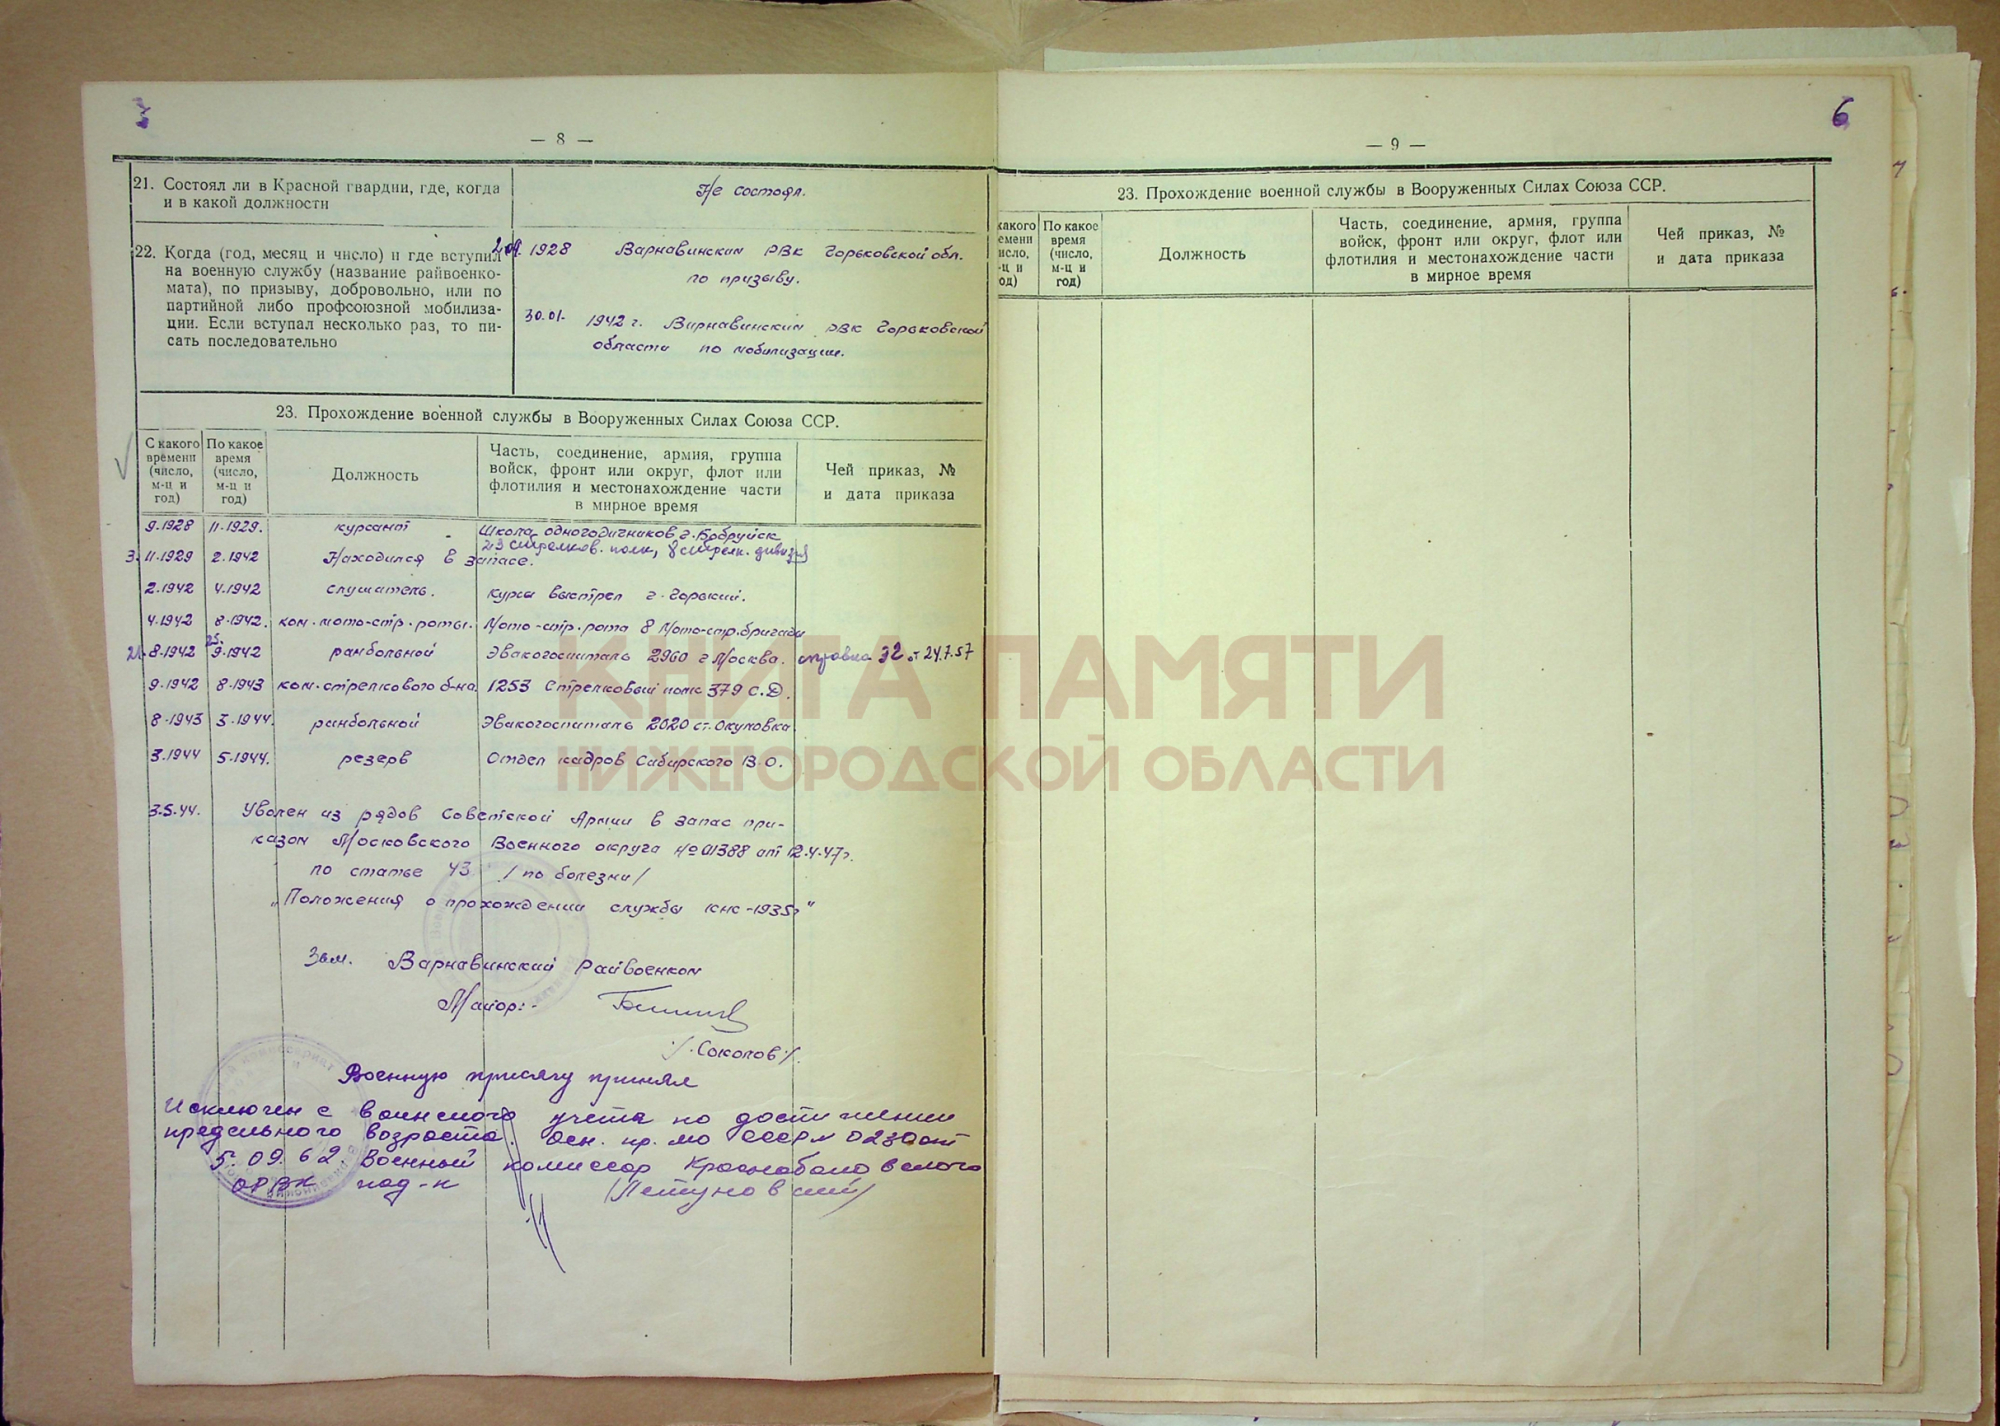 — 8 —
21. Состоял ли в Красной гвардии, где, когда
и в какой должности
Не состоял.
22. Когда (год, месяц и число) и где вступил
на военную службу (название райвоенко-
мата), по призыву, добровольно, или по
партийной либо профсоюзной мобилиза-
ции. Если вступал несколько раз, то пи-
сать последовательно
1928 Варнавинским РВК Горьковской обл.
по призыву.
30.01. 1942 г. Варнавинским РВК Горьковской
области по мобилизации.
23. Прохождение военной службы в Вооруженных Силах Союза ССР.
С какого
времени
(число,
м-ц и
год)
По какое
время
(число,
м-ц и
год)
Должность
Часть, соединение, армия, группа
войск, фронт или округ, флот или
флотилия и местонахождение части
в мирное время
Чей приказ, №
и дата приказа
9.1928 11.1929. курсант Школа одногодичников г. Бобруйск
23 стрелков. полк, 8 стрелк. дивизия
3. 11.1929 2.1942 Находился в запасе.
2.1942 4.1942 слушатель. Курсы выстрел г. Горький.
4.1942 8.1942. ком. мото-стр. роты. Мото-стр. рота 8 Мото-стр. бригады
8.1942 25. 9.1942 ранбольной Эвакогоспиталь 2960 г. Москва. справка 32 от 24.7.57
9.1942 8.1943 ком. стрелкового б-на 1253 Стрелковый полк 379 с.Д.
8.1943 3.1944. ранбольной Эвакогоспиталь 2020 ст. Окуловка
3.1944 5.1944. резерв Отдел кадров Сибирского В.О.
3.5.44. Уволен из рядов Советской Армии в запас при-
казом Московского Военного округа № 01388 от 12.4.47г.
по статье 43 /по болезни/
„Положения о прохождении службы кнс-1935г"
Зам. Варнавинский Райвоенком
Майор:-
/.Соколов./.
Военную присягу принял
Исключен с воинского учета по достижении
предельного возраста. Осн. пр. МО СССР № 0230 от
5.09.62. Военный комиссар Краснобаковского
ОРВК под-к (Летуновский)
6
— 9 —
23. Прохождение военной службы в Вооруженных Силах Союза ССР.
какого
емени
исло,
-ц и
од)
По какое
время
(число,
м-ц и
год)
Должность
Часть, соединение, армия, группа
войск, фронт или округ, флот или
флотилия и местонахождение части
в мирное время
Чей приказ, №
и дата приказа
КНИГА ПАМЯТИ
НИЖЕГОРОДСКОЙ ОБЛАСТИ